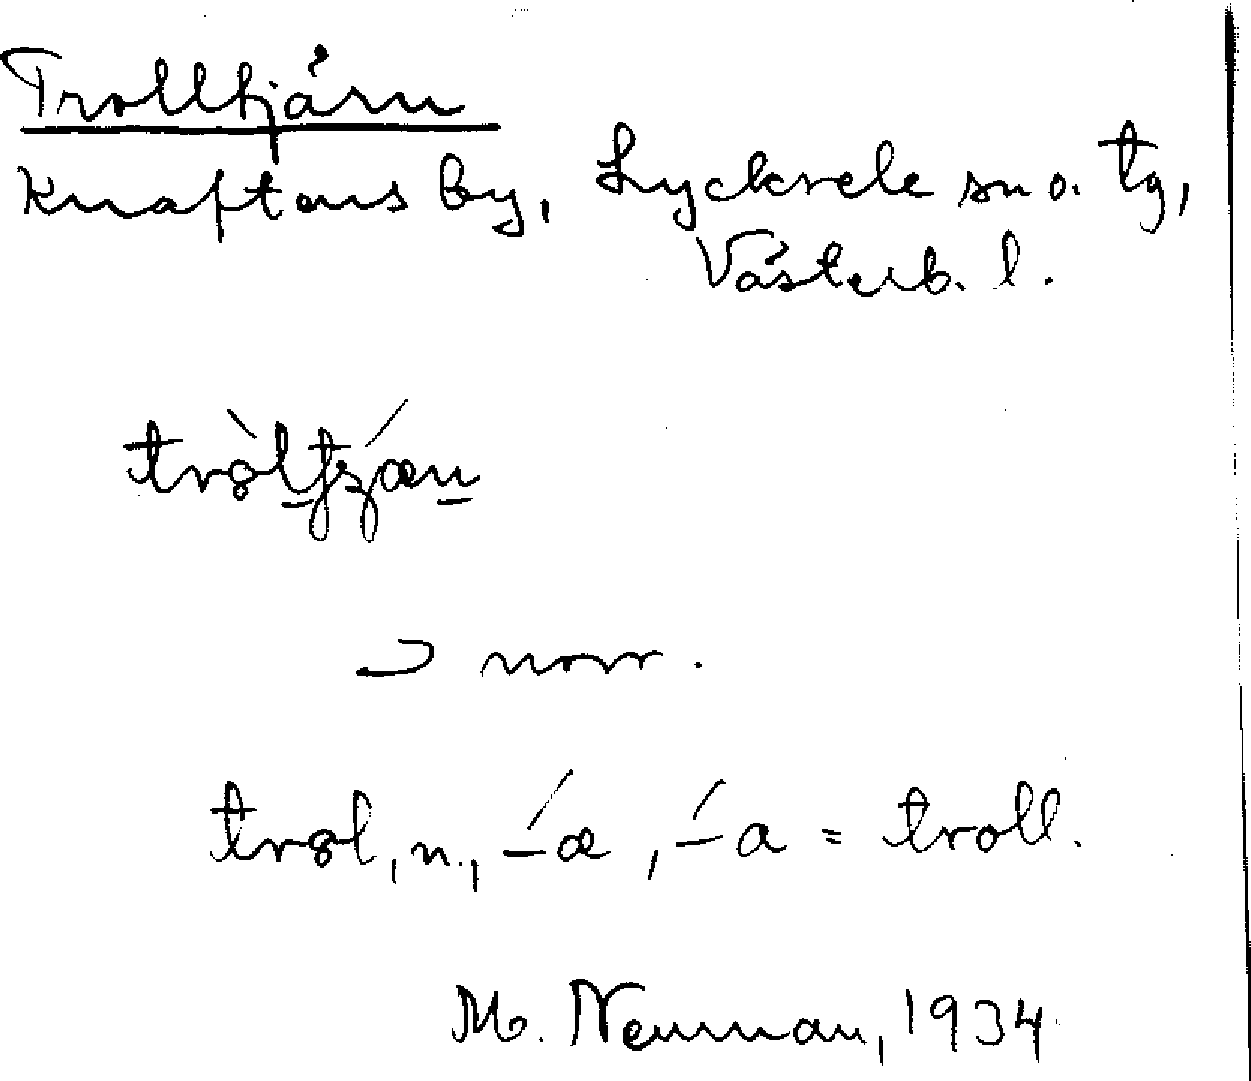 Trolltjärn
Knaftens by, Lycksele sn o. tg,
Västerb. l.
⊃ norr.
trol, n., -́æ, -́a = troll.
M. Neuman, 1934